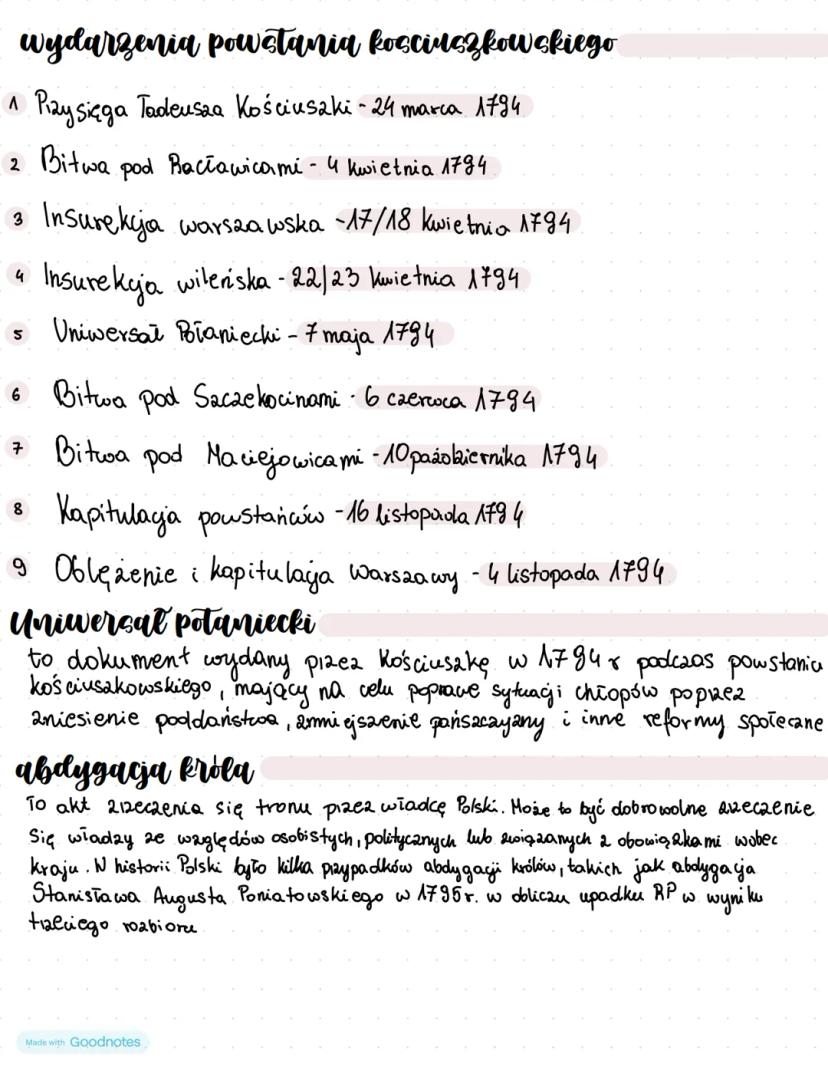 wydarzenia powstania kosciuszkowskiego
1 Przysięga Tadeusza Kościuszki - 24 marca 1794
2 Bitwa pod Racławicami - 4 kwietnia 1794
3 Insurekcja warszawska - 17/18 kwietnia 1794
4 Insurekcja wileńska - 22/23 kwietnia 1794
5 Uniwersał Połaniecki - 7 maja 1794
6 Bitwa pod Szczekocinami - 6 czerwca 1794
7 Bitwa pod Maciejowicami - 10 października 1794
8 Kapitulacja powstańców - 16 listopada 1794
9 Oblężenie i kapitulacja Warszawy - 4 listopada 1794
Uniwersał połaniecki
to dokument wydany przez Kościuszkę w 1794 r podczas powstania
kościuszkowskiego, mający na celu poprawe sytuacji chłopów poprzez
zniesienie poddaństwa, zmniejszenie pańszczyzny i inne reformy społeczne
abdygacja króla
To akt zrzeczenia się tronu przez władcę Polski. Może to być dobrowolne zrzeczenie
się władzy ze względów osobistych, politycznych lub związanych z obowiązkami wobec
kraju. W historii Polski było kilka przypadków abdygacji królów, takich jak abdygacja
Stanisława Augusta Poniatowskiego w 1795 r. w obliczu upadku RP w wyniku
trzeciego rozbioru
Made with Goodnotes